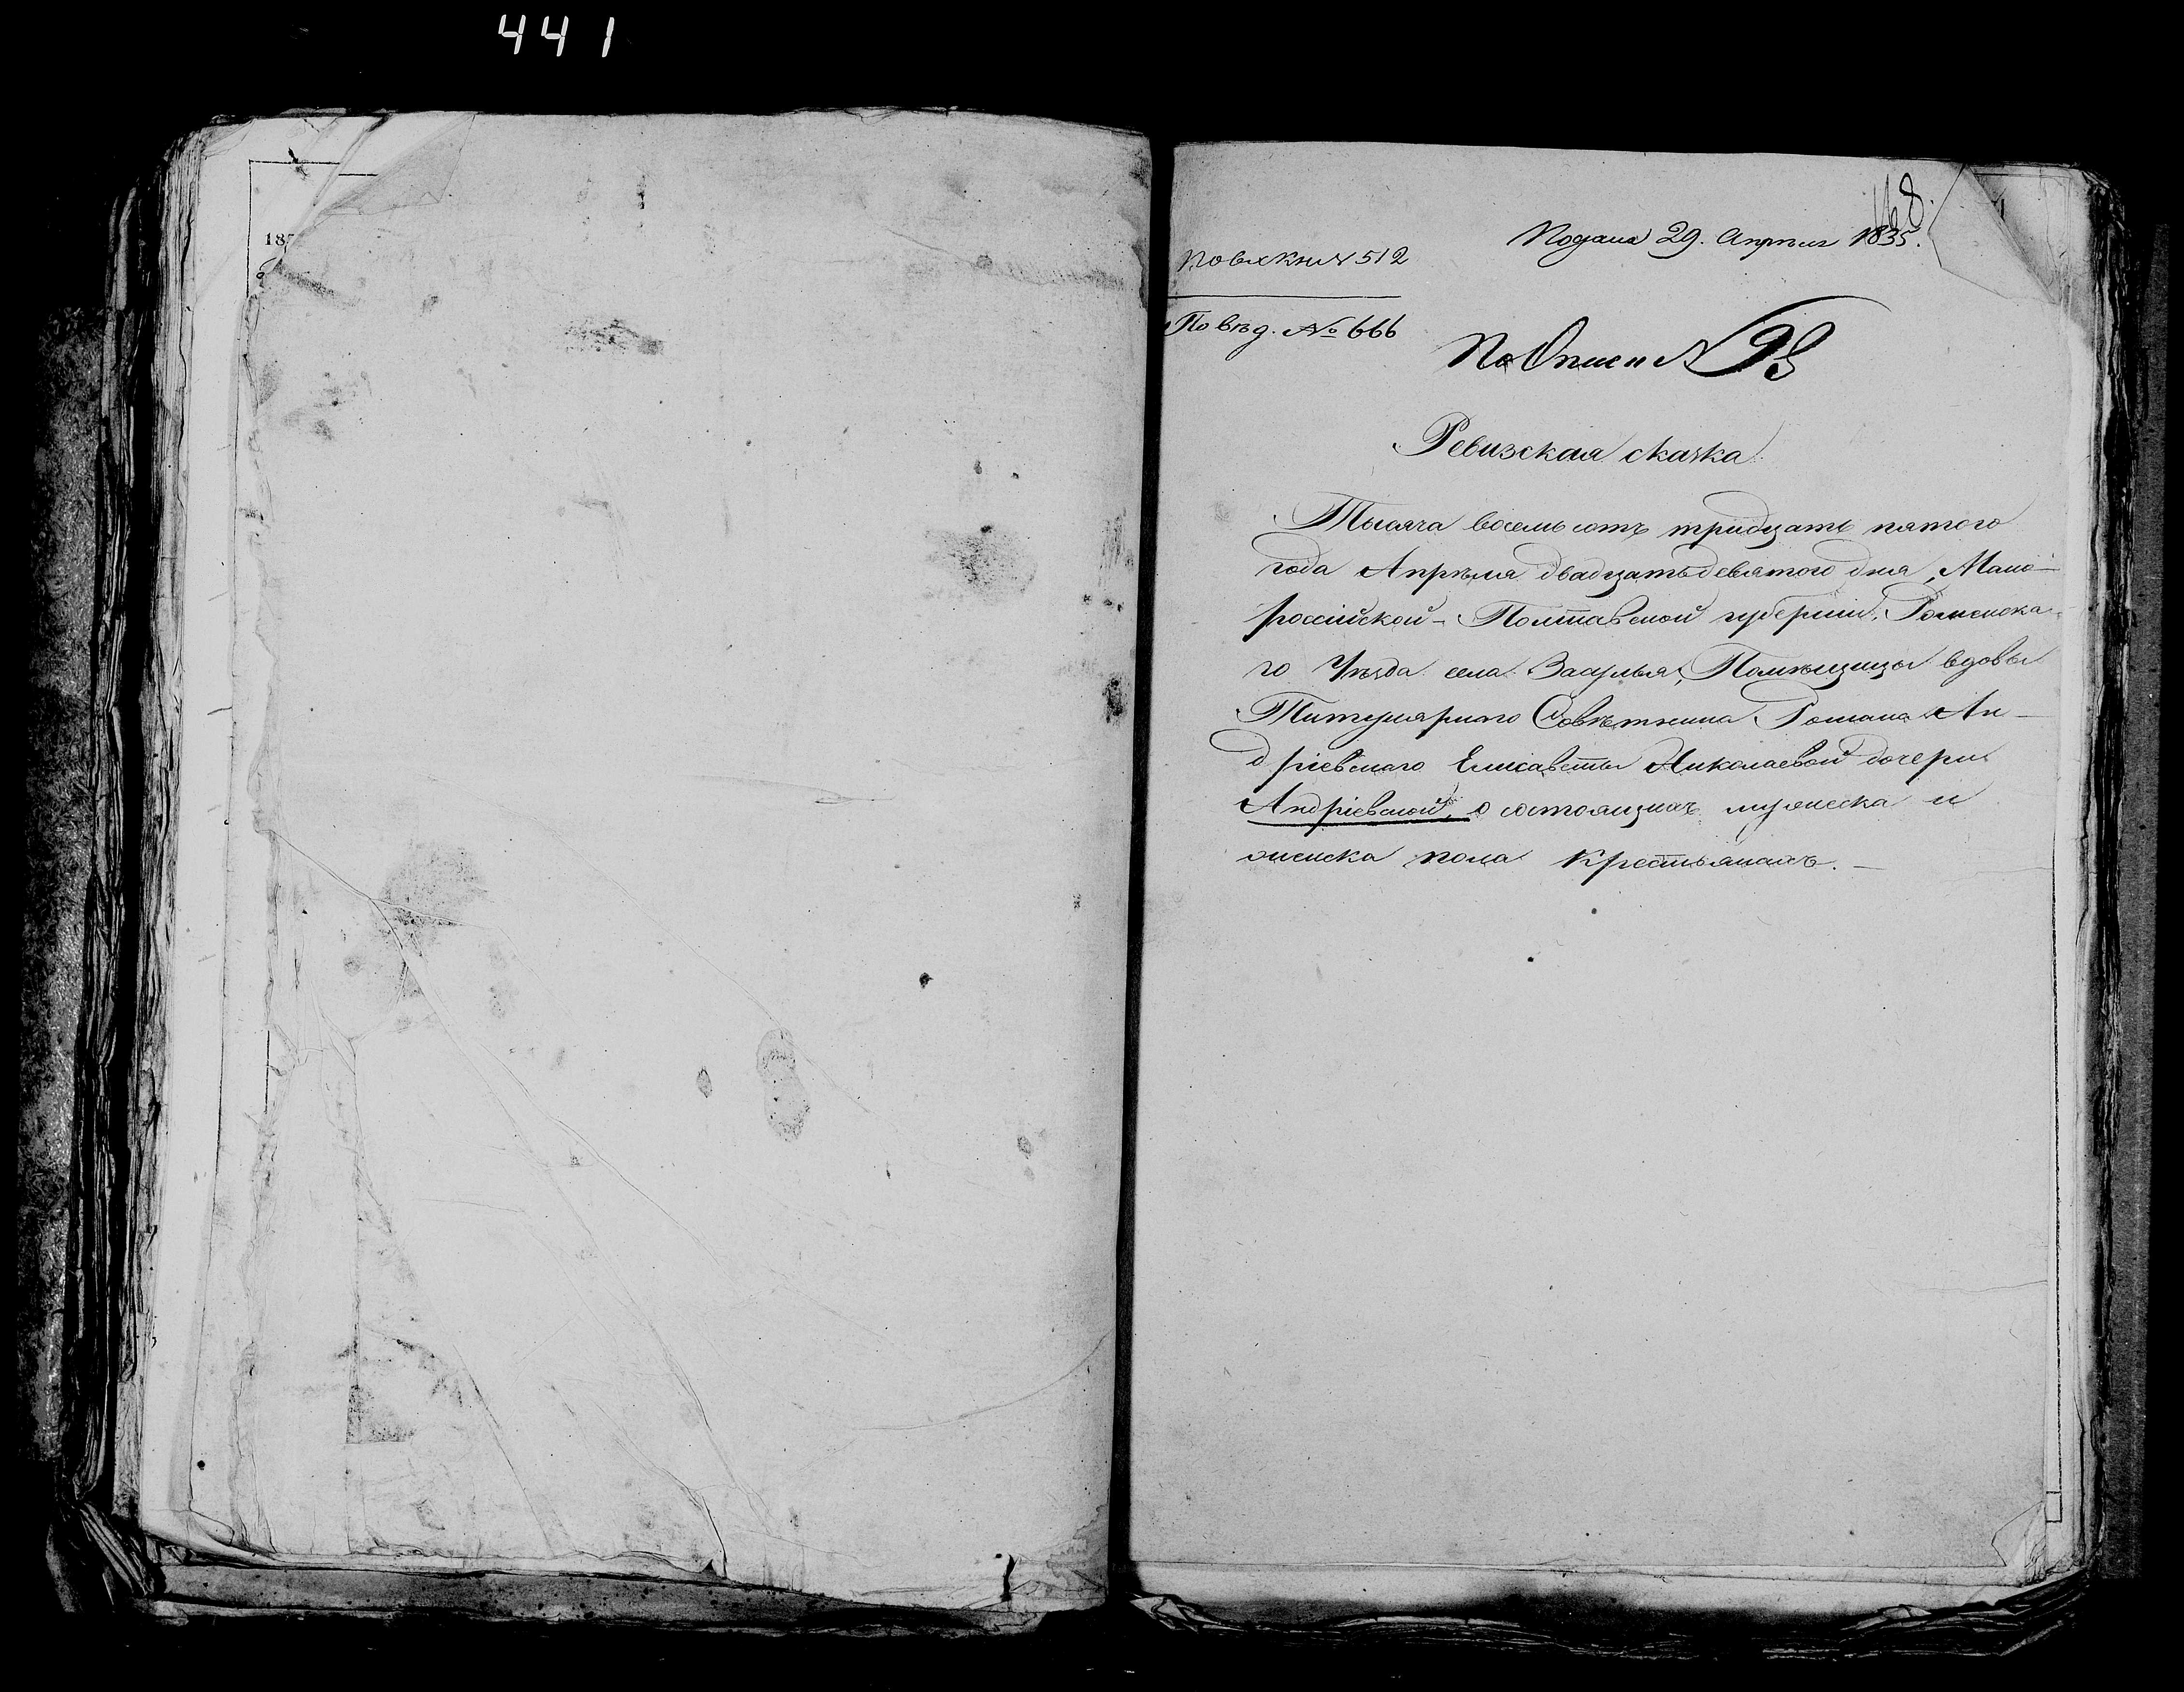 441
187
8.
Подана 29. Апреля 1835.
По вх Кн № 512
По вѣд. № 666
По Описи № 93
Ревизская сказка
Тысяча восемь сотъ тридцать пятого
года Апрѣля двадцать девятого дня, Мало-
россійской - Полтавской губерніи, Роменска-
го Уѣзда села Засулья, Помѣщицы вдовы
Титулярного Совѣтника Романа Ан-
дріевского Елисаветы Николаевой дочери
Андріевской, о состоящихъ мужеска и
женска пола крестьянахъ. -